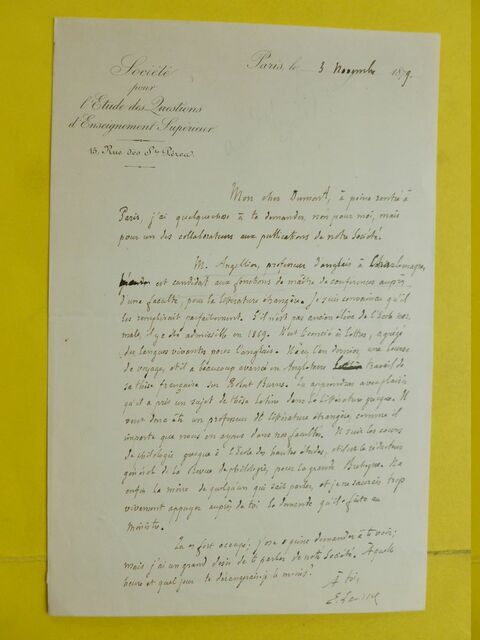 Société
pour
l'Etude des Questions
d'Enseignement Supérieur.
15, Rue des Sts Pères.
Paris, le 3 Novembre 1879.
Mon cher Dumont, à peine rentré à
Paris, j'ai quelque chose à te demander, non pour moi, mais
pour un des collaborateurs aux publications de notre Société.
M. Angellier, professeur d'anglais à Charlemagne,
est candidat aux fonctions de maître de conférences auprès
d'une faculté, pour la littérature étrangère. Je suis convaincu qu'il
les remplirait parfaitement. S'il n'est pas ancien élève de l'Ecole nor-
male, il y a été admissible en 1869. Il est licencié ès lettres, agrégé
des langues vivantes pour l'anglais. Il a eu l'an dernier, une bourse
de voyage, et il a beaucoup avancé en Angleterre travail de
sa thèse française sur Robert Burns. Tu apprendras avec plaisir
qu'il a pris un sujet de thèse latine dans la littérature grecque. Il
sera donc un professeur de littérature étrangère, comme il
importe que nous en ayons dans nos facultés. Il suit les cours
de philologie grecque à l'Ecole des hautes études, et il est le rédacteur
général de la Revue de philologie, pour la grande Bretagne. Il a
enfin la mine de quelqu'un qui sait parler, et je ne saurais trop
vivement appuyer auprès de toi la demande qu'il a faite au
Ministre.
Tu es fort occupé; j'ose à peine demander à te voir;
mais j'ai un grand désir de te parler de notre Société. A quelle
heure et quel jour te dérangerais-je le moins?
A toi,
E. Lavisse